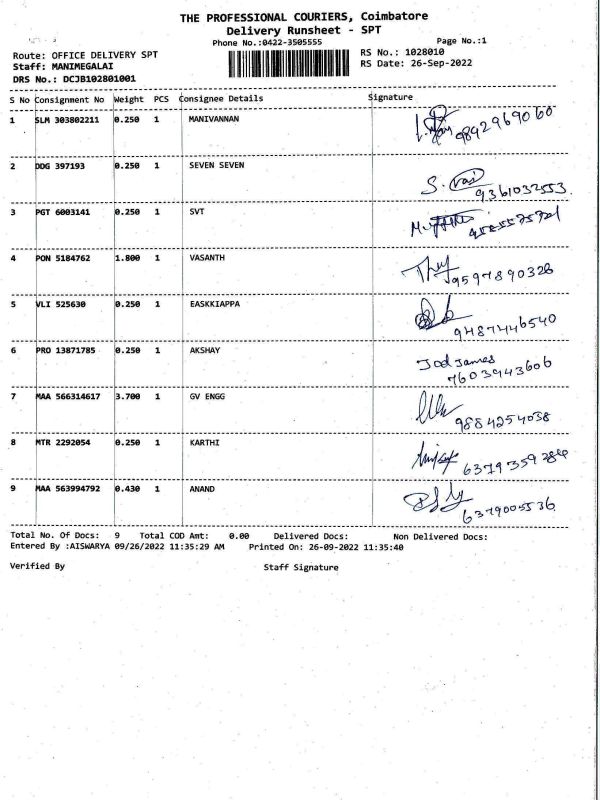 THE PROFESSIONAL COURIERS, Coimbatore
Delivery Runsheet - SPT
Phone No.:0422-3505555 Page No.:1
Route: OFFICE DELIVERY SPT RS No.: 1028010
Staff: MANIMEGALAI RS Date: 26-Sep-2022
DRS No.: DCJB102801001
S No Consignment No Weight PCS Consignee Details Signature
1 SLM 303802211 0.250 1 MANIVANNAN 9842969060
2 DDG 397193 0.250 1 SEVEN SEVEN
9361032553
3 PGT 6003141 0.250 1 SVT
4 PON 5184762 1.800 1 VASANTH
9597890326
5 VLI 525630 0.250 1 EASKKIAPPA
9487446540
6 PRO 13871785 0.250 1 AKSHAY
James
7603943606
7 MAA 566314617 3.700 1 GV ENGG
9884254038
8 MTR 2292054 0.250 1 KARTHI
9 MAA 563994792 0.430 1 ANAND
6379005536
Total No. Of Docs: 9 Total COD Amt: 0.00 Delivered Docs: Non Delivered Docs:
Entered By :AISWARYA 09/26/2022 11:35:29 AM Printed On: 26-09-2022 11:35:40
Verified By Staff Signature